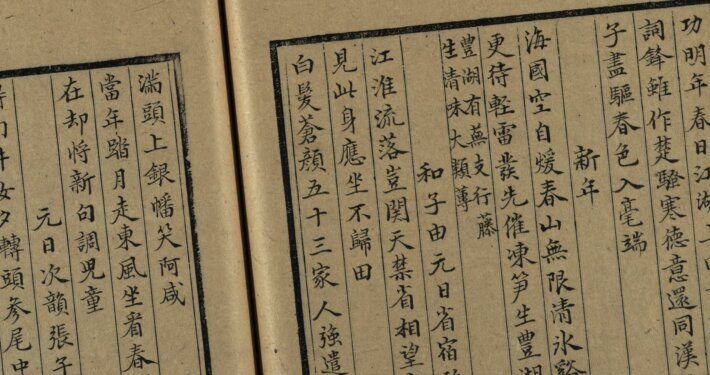 功明年春日江湖上
詞鋒雖作楚騷寒德意還同漢
子盡驅春色入毫端
新年
海國空自煖春山無限清冰谿
更待輕雷發先催凍笋生豐湖
豐湖有蕪支行藤
生清味大類蓴
和子由元日省宿
江淮流落豈関天禁省相望
見此身應坐不歸田
白髮蒼顔五十三家人強遣
滿頭上銀幡笑阿咸
當年踏月走東風坐看春
在却將新句調児童
元日次韻張子
句牛女夕轉頭參尾中